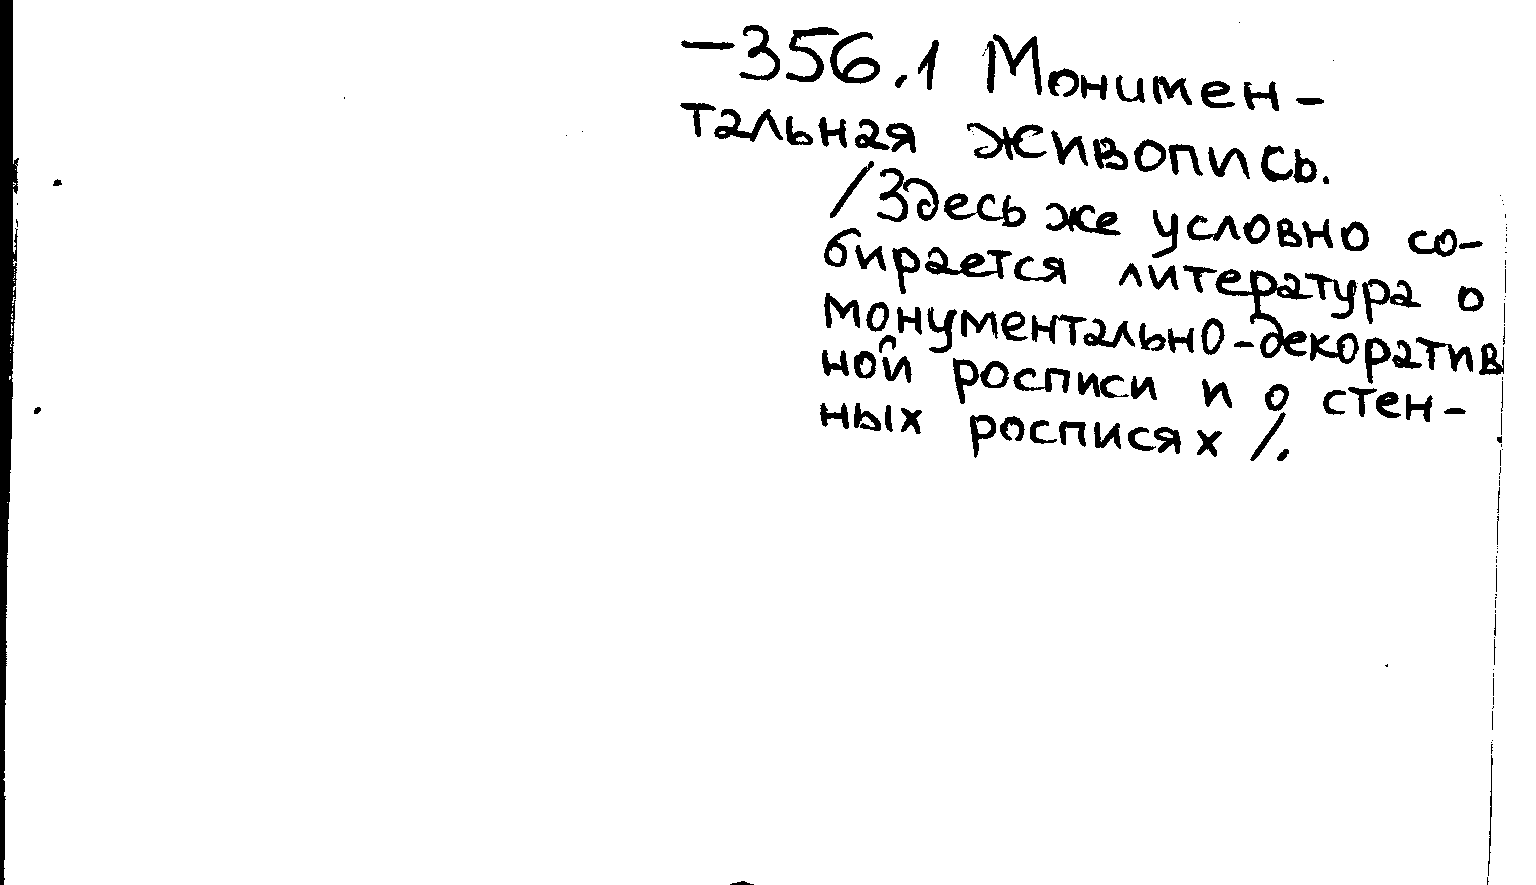 –356.1 Монимен-
тальная живопись.
/Здесь же условно со-
бирается литература о
монументально-декоратив
ной росписи и о стен-
ных росписях/.